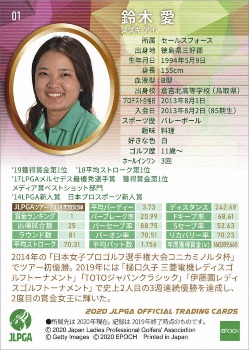 01
鈴木 愛
スズキ アイ
所属 セールスフォース
出身地 徳島県三好郡
生年月日 1994年5月9日
身長 155cm
血液型 B型
出身校 倉吉北高等学校(鳥取県)
プロテスト合格日 2013年8月1日
入会日 2013年8月2日(85期生)
スポーツ歴 バレーボール
趣味 料理
好きな色 白
ゴルフ歴 11歳〜
ホールインワン 3回
'19獲得賞金第1位 '18平均ストローク第1位
'17JLPGAメルセデス最優秀選手賞 獲得賞金第1位
メディア賞ベストショット部門
'14JLPGA新人賞 日本プロスポーツ新人賞
JLPGAツアー
賞金ランキング 1 パーブレーク率 20.99 Fキープ率 68.61
出場試合数 25 パーセーブ率 88.75 Sセーブ率 52.63
ラウンド数 81 パーオン率 70.51 リカバリー率 70.23
平均ストローク 70.31 平均パット 1.756
平均バーディ数 3.73 Dディスタンス 242.69
2014年の「日本女子プロゴルフ選手権大会コニカミノルタ杯」
でツアー初優勝。2019年には「樋口久子 三菱電機レディスゴ
ルフトーナメント」「TOTOジャパンクラシック」「伊藤園レディ
スゴルフトーナメント」で史上2人目の3週連続優勝を達成し、
2度目の賞金女王に輝いた。
2020 JLPGA OFFICIAL TRADING CARDS
JLPGA
■所属先は2020年現在。記録は2019年終了時点のものです。
© 2020 Japan Ladies Professional Golfers' Association
© Getty Images © 2020 EPOCH Printed in Japan
EPOCH